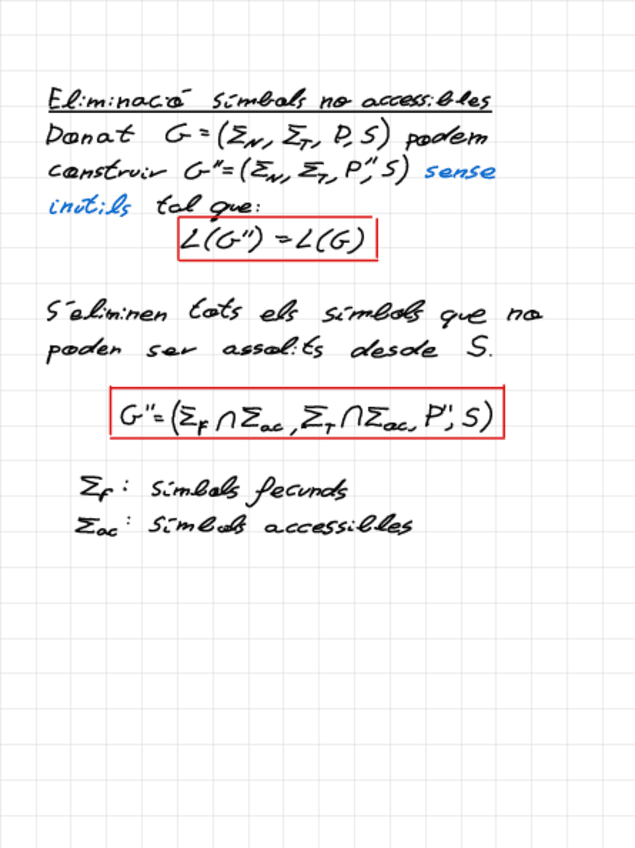 Eliminació símbols no accessibles
Donat G = (Σ_N, Σ_T, P, S) podem
construir G" = (Σ_N, Σ_T, P", S) sense
inútils tal que:
L(G") = L(G)
S'eliminen tots els símbols que no
poden ser assolits desde S.
G" = (Σ_F ∩ Σ_ac, Σ_T ∩ Σ_ac, P", S)
Σ_F: símbols fecunds
Σ_ac: símbols accessibles